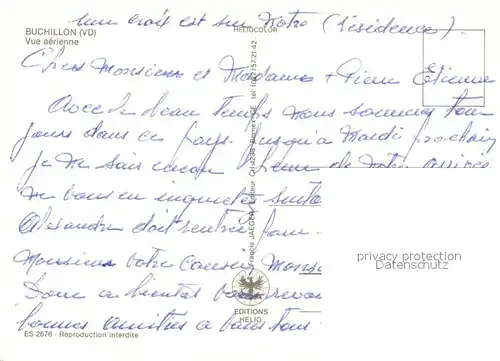 une croix est sur Notre (résidence).
BUCHILLON (VD)
Vue aérienne
HELIOCOLOR
Chers Monsieur et Madame + Pierre Etienne
Avec de beau temps nous sommes tou
jours dans ce pays. Jusqu'à Mardi prochain
je ne sais encore l'heure de notre arrivée
ne vous en inquietez
Alexandre doit rentrer
Monsieur votre
Donc a bientot
bonnes amities a vous tous
Francis JAEGER, Editeur CH
EDITIONS
HELIO
ES 2676 - Reproduction interdite
privacy protection
Datenschutz